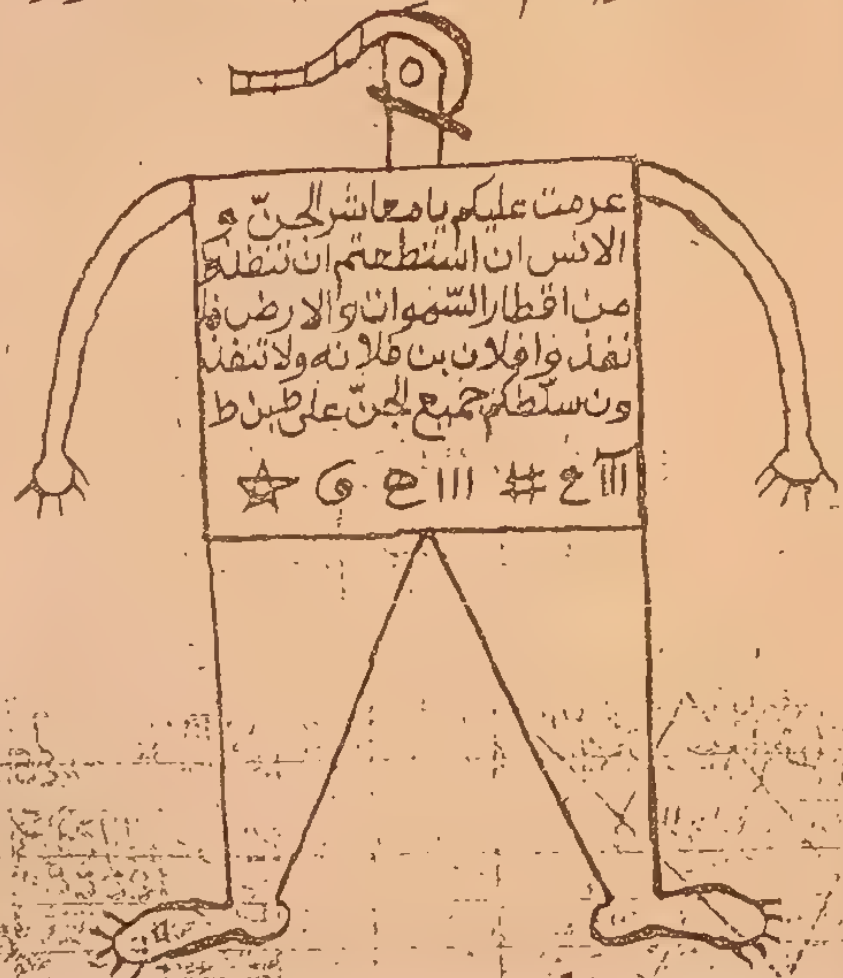 عزمت عليكم يا معاشر الجنّ و
الانس ان استطعتم ان تنفذو
من اقطار السّموات والارض فا
نفذوا فلان بن فلانه ولا تنفذ
ون سلّطكم جميع الجنّ على